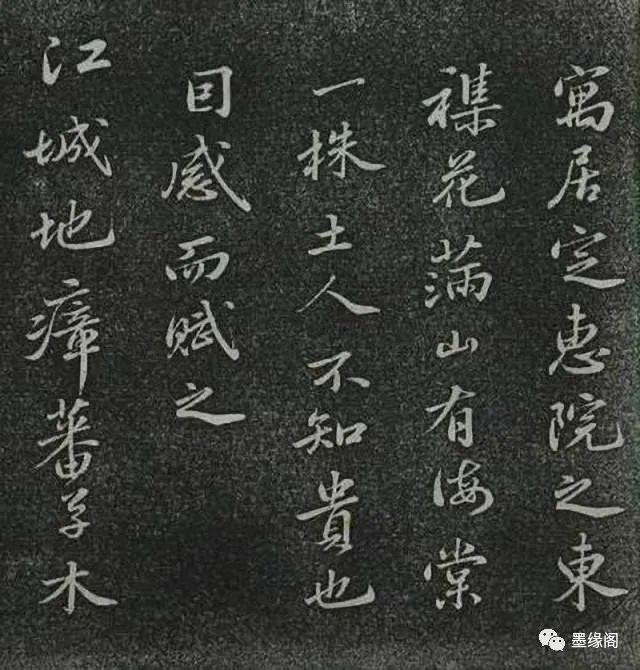 寓居定惠院之東
襍花滿山有海棠
一株土人不知貴也
因感而賦之
江城地瘴蕃草木
墨缘阁